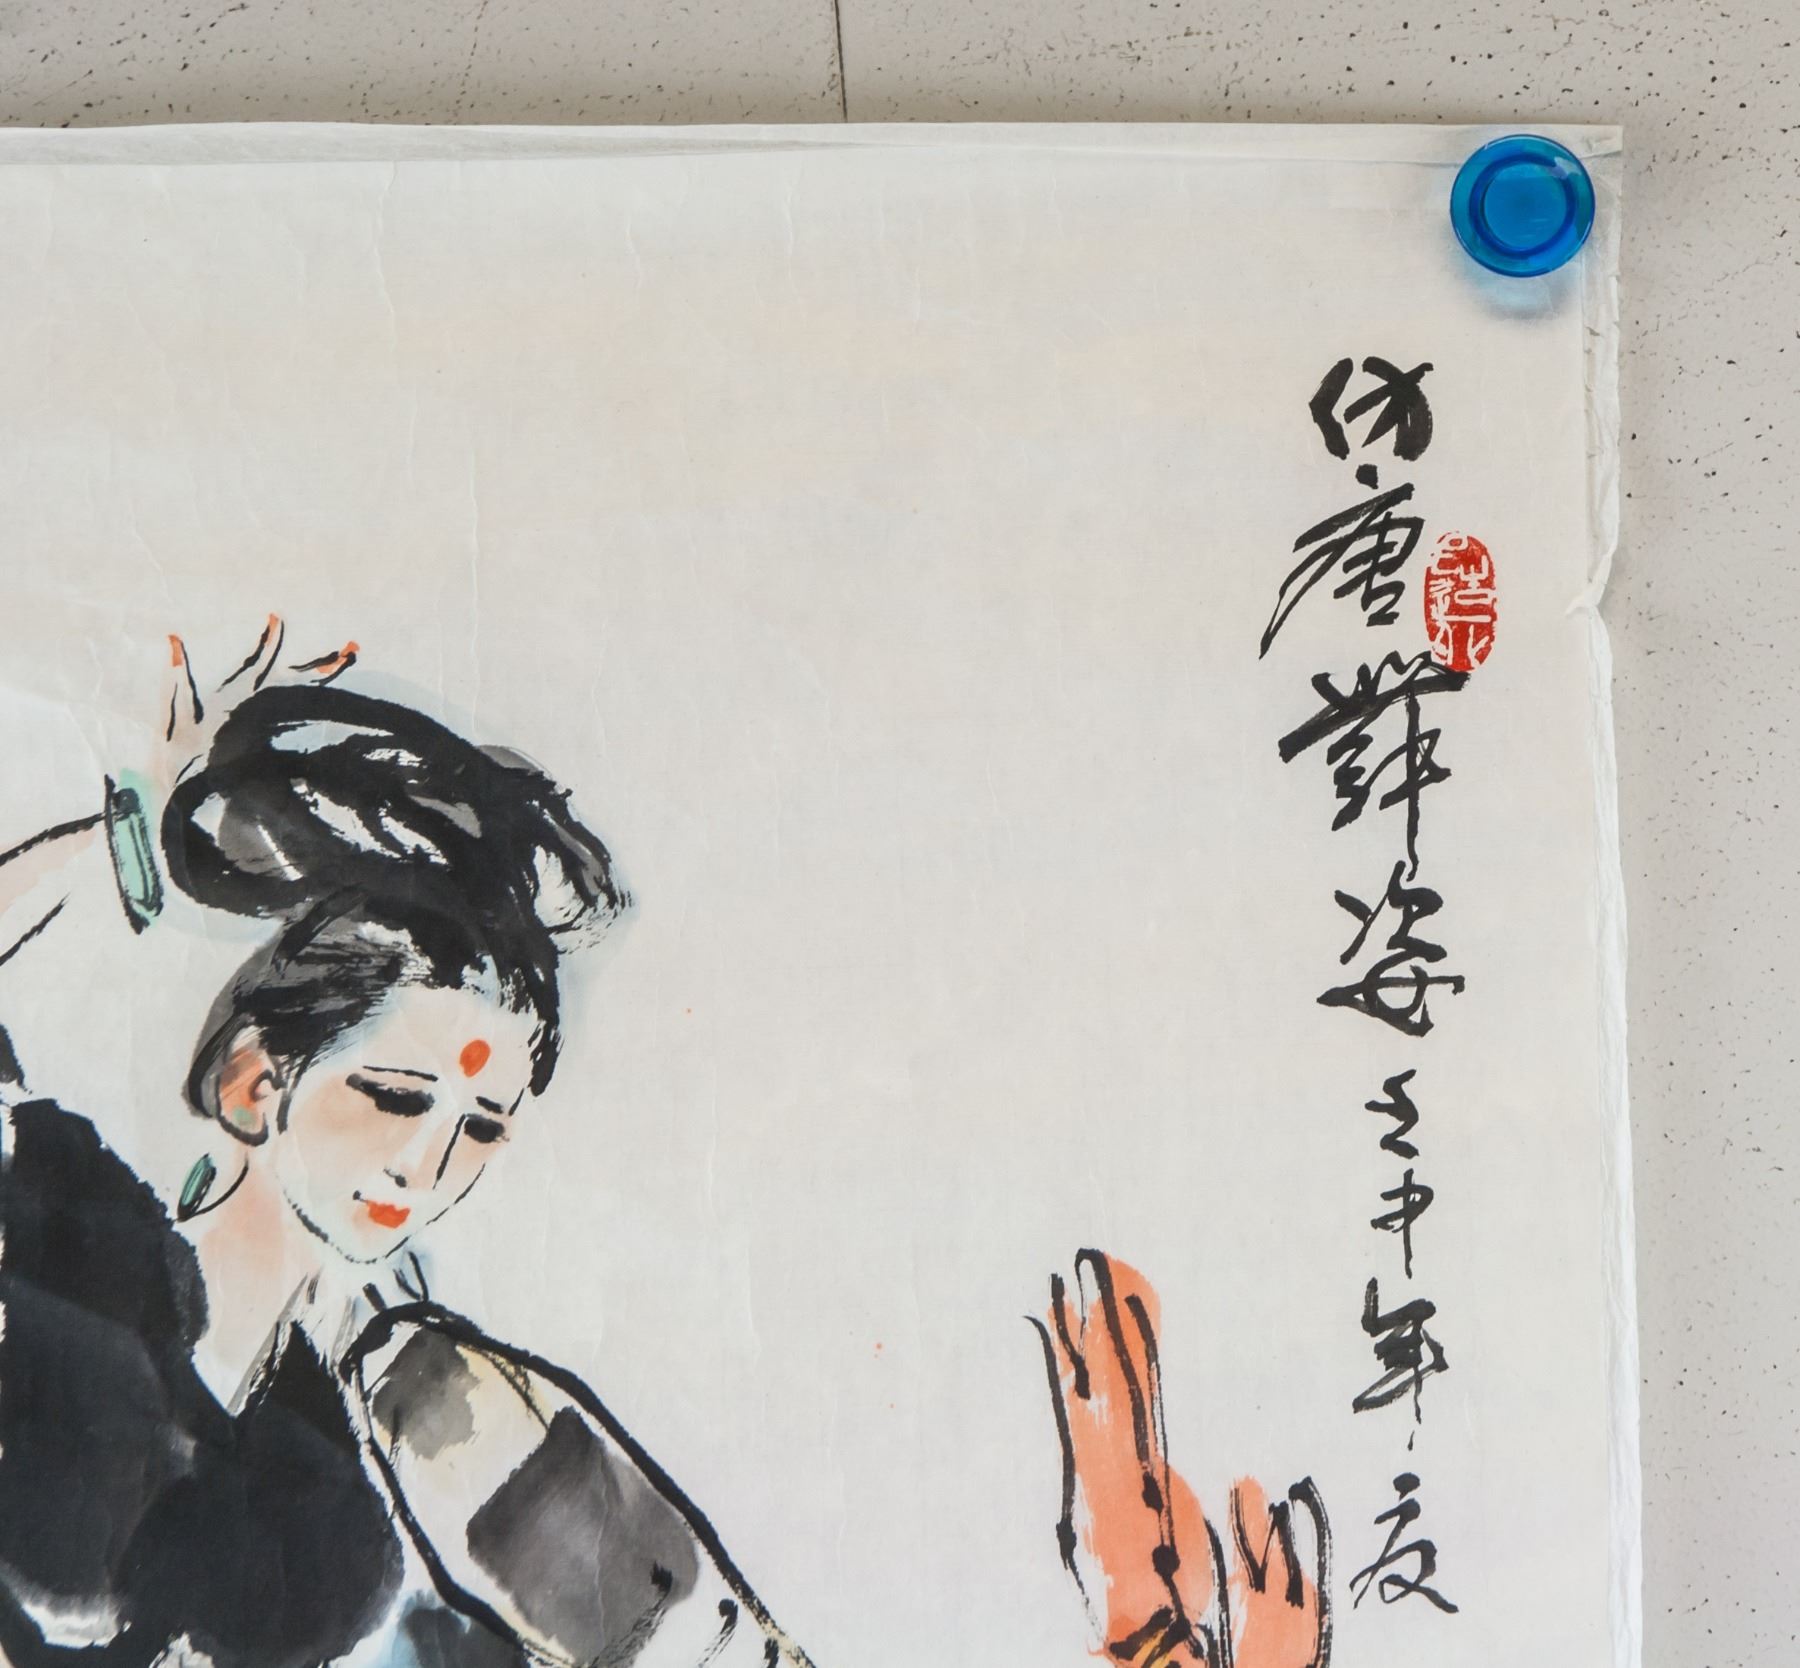 仿唐舞姿壬申年夏